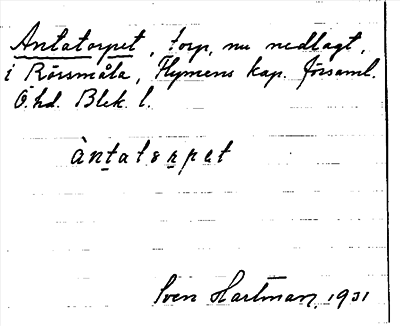 Antatorpet, torp, nu nedlagt,
i Rörsmåla, Flymens kap. församl.
Ö. hd. Blek. l.
àntatorpet
Sven Hartman, 1931